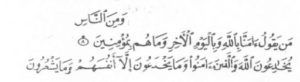 وَمِنَ النَّاسِ
مَن يَقُولُ ءَامَنَّا بِاللَّهِ وَبِالْيَوْمِ الْآخِرِ وَمَا هُم بِمُؤْمِنِينَ ٨
يُخَادِعُونَ اللَّهَ وَالَّذِينَ ءَامَنُوا وَمَا يَخْدَعُونَ إِلَّا أَنفُسَهُمْ وَمَا يَشْعُرُونَ